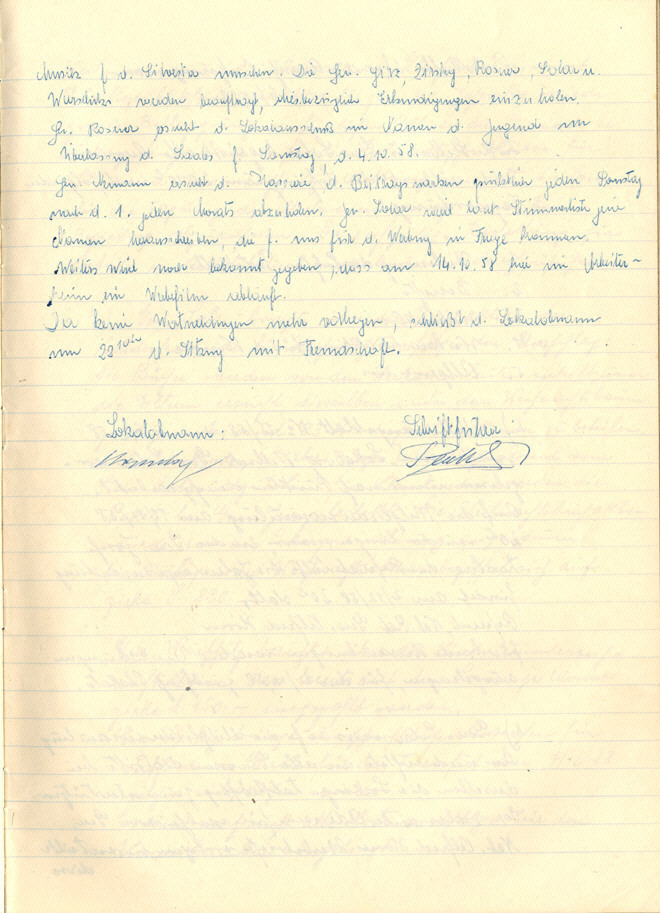 Musik f. d. Silvester umsehen. Die Gen. Girz, Zitsky, Rosner, Solar u.
werden beauftragt, diesbezügliche Erkundigungen einzuholen.
Gen. Rosner ersucht d. Lokalausschuß im Namen d. Jugend um
Überlassung d. Saales f. Samstag, d. 4.10.58.
Gen. ersucht d. Kassiere, d. Beitragsmarken pünktlich jeden Samstag
nach d. 1. jeden Monats abzuholen. Gen. Solar wird laut Stimmerliste jene
Namen herausschreiben, die f. uns für d. Werbung in Frage kommen.
Weiters wird noch bekannt gegeben, dass am 14.10.58 hier im Arbeiter-
heim ein Werbefilm abläuft.
Da keine Wortmeldungen mehr vorliegen, schließt d. Lokalobmann
um 22 Uhr d. Sitzung mit Freundschaft.
Lokalobmann: Schriftführer: